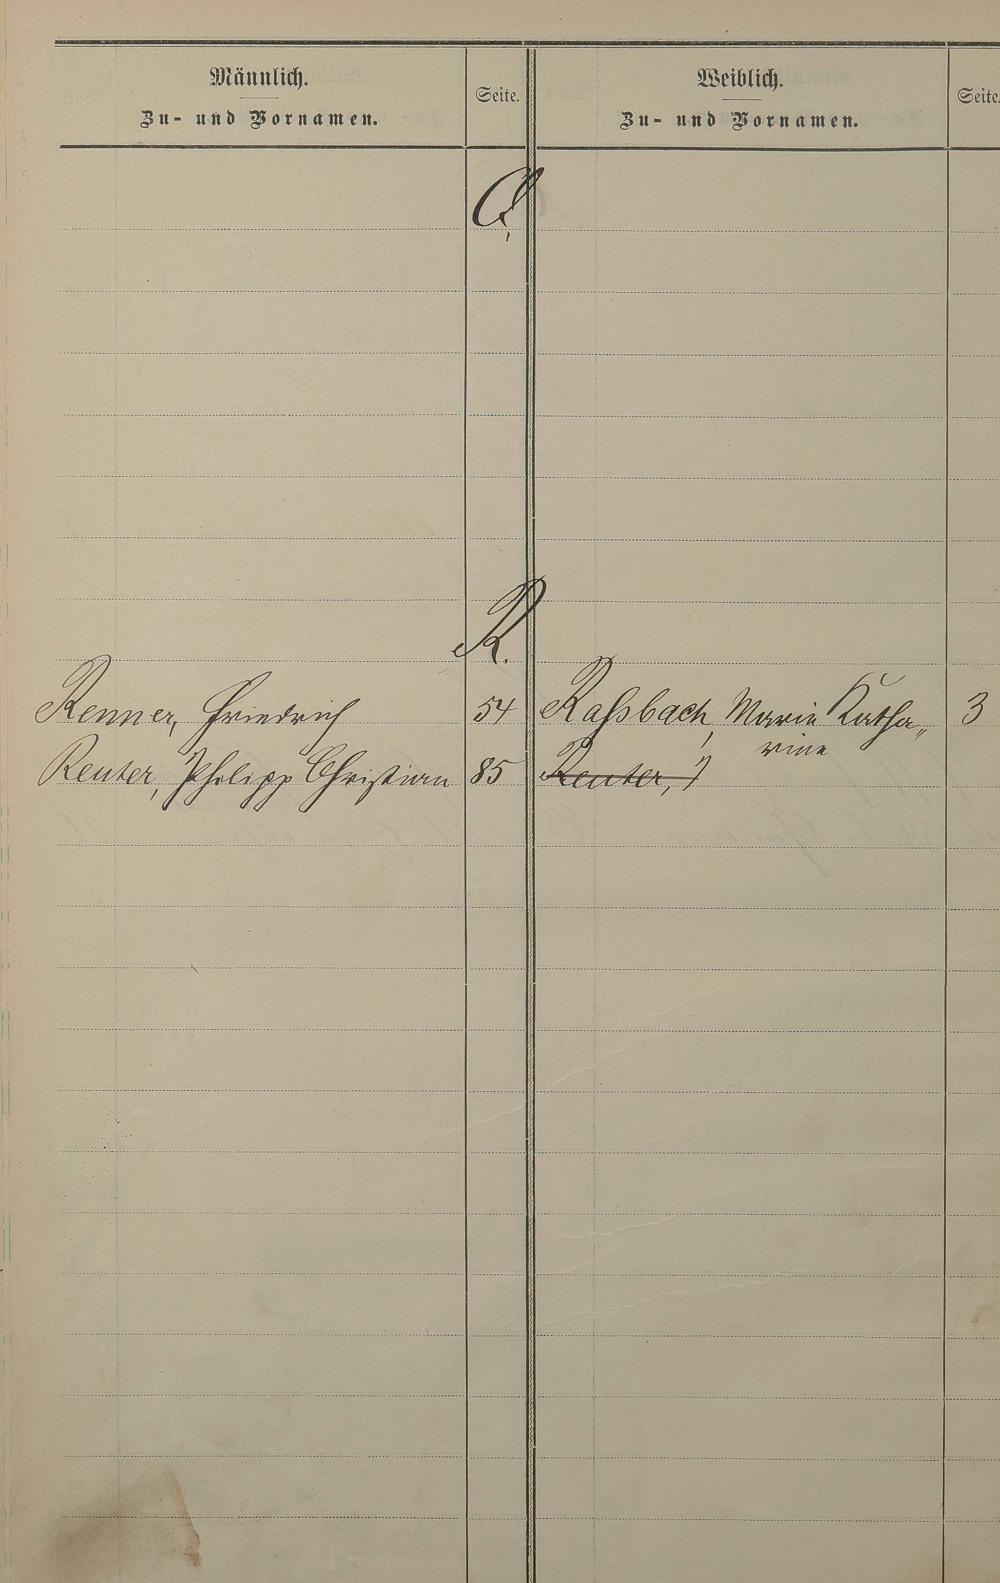 Männlich.
Zu- und Vornamen.
Seite.
Weiblich.
Zu- und Vornamen.
Seite.
Q,
R.
Renner, Friedrich 54 Raßbach, Marie Katha„ 3
rine
Reuter, Philipp Christian 85 Reuter, P